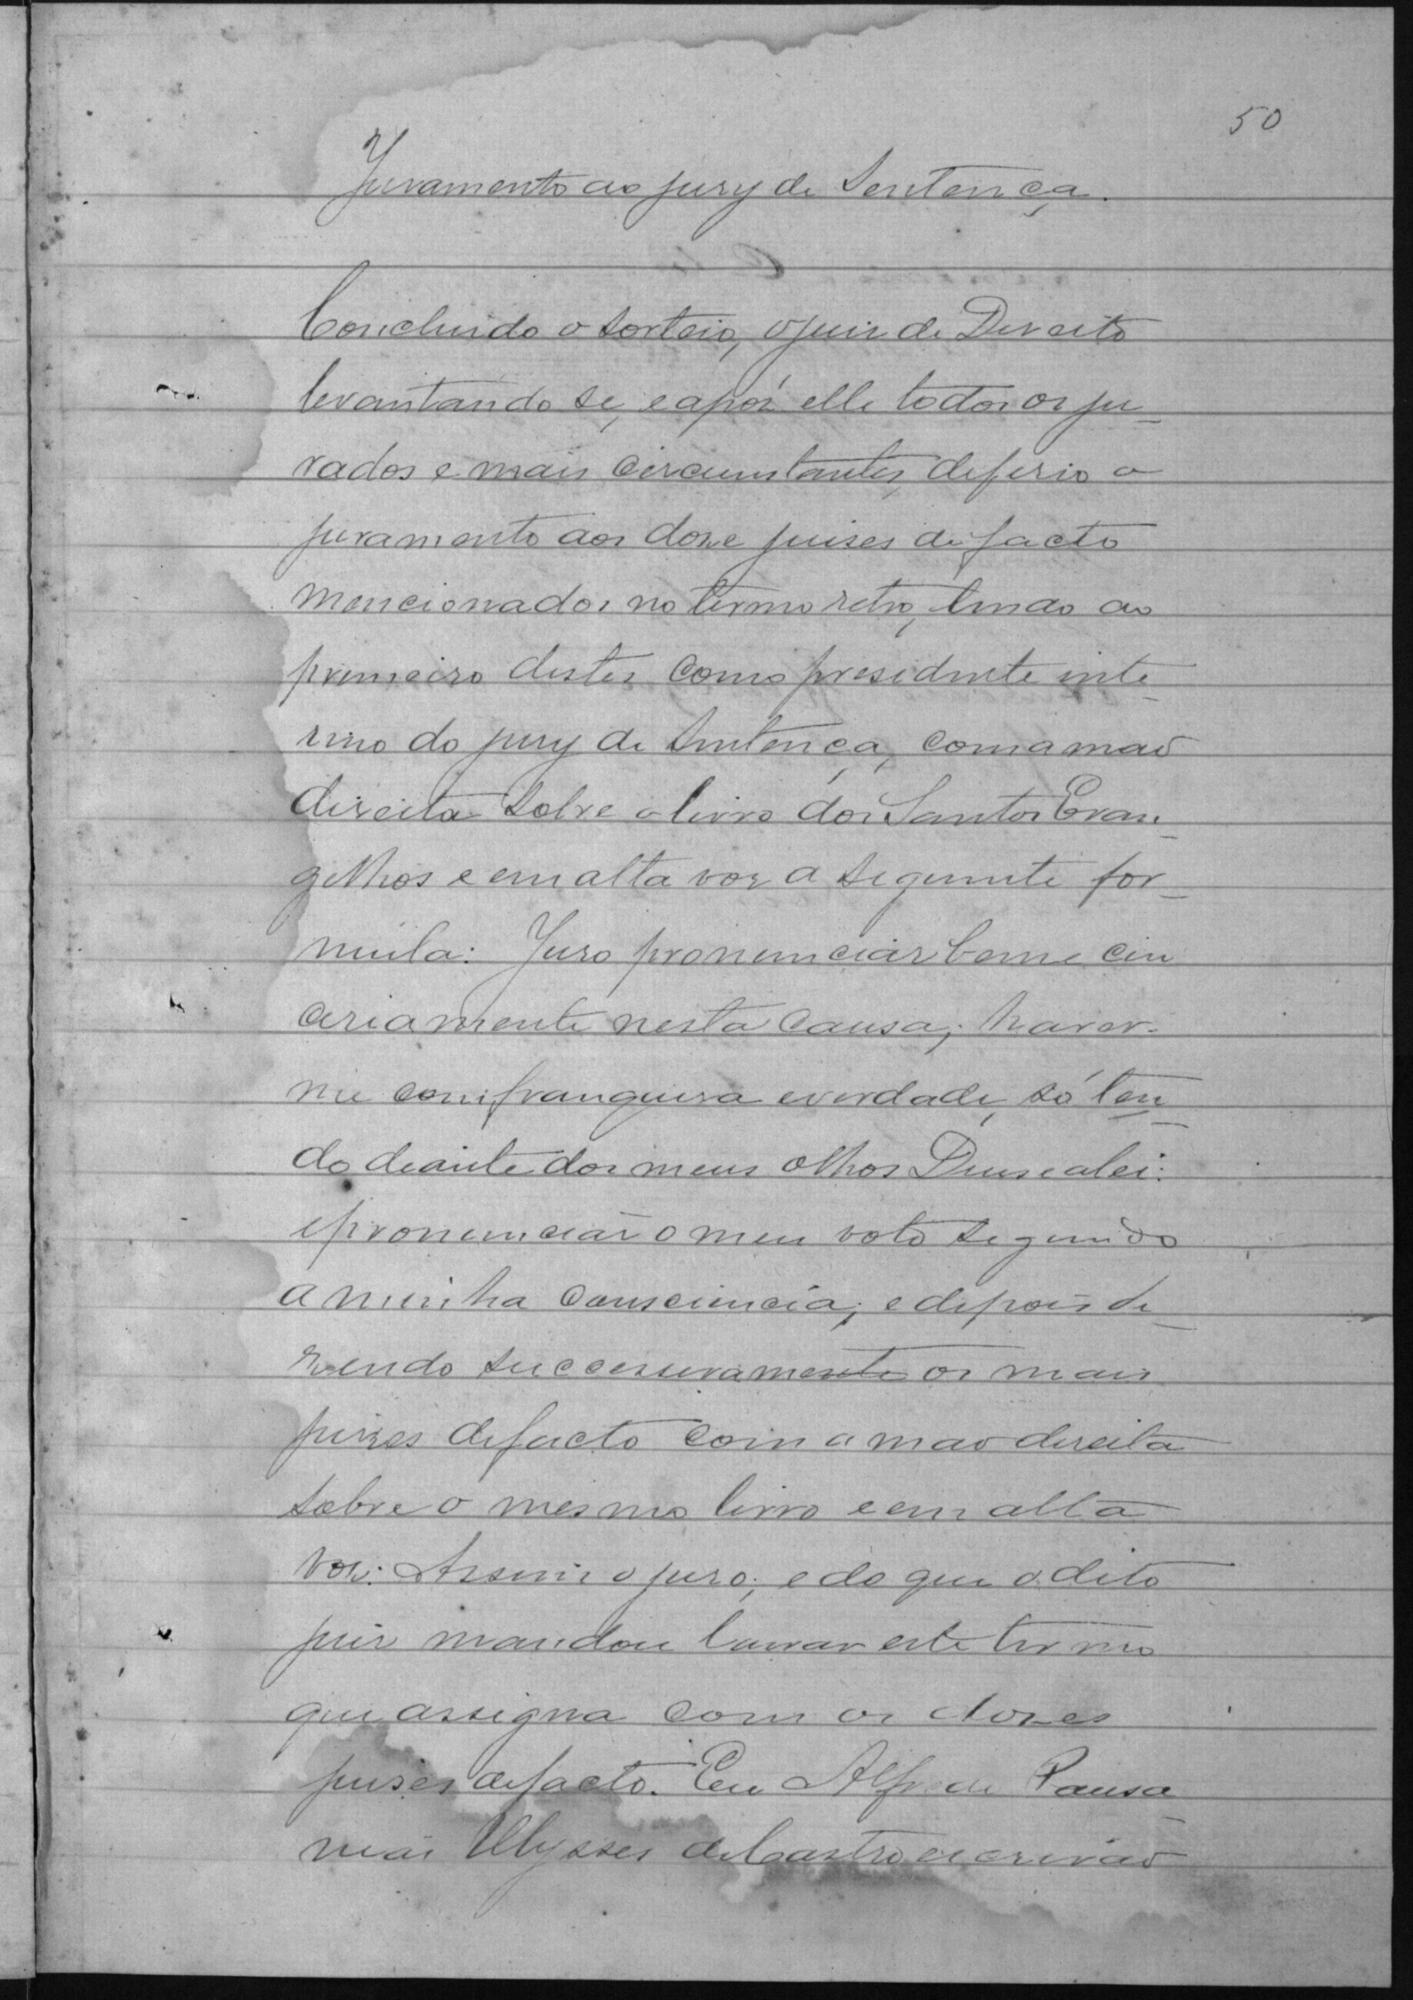 50
Juramento ao jury de Sentença.
Concluido o sorteio, o juiz de Direito
levantando se, e após elle todos os ju_
rados e mais circumstantes, deferio o
juramento aos doze juises de facto
mencionados no termo retro, lendo ao
primeiro destes como presidente inte_
rino do jury de Sentença, com a mao
direita sobre o livro dos Santos Evan_
gelhos e em alta voz a seguinte for_
mula: Juro pronunciar bem e cin
ceriamente nesta causa; haver-
me com franqueza e verdade, só ten_
do deante dos meus olhos Deus e a lei:
e pronunciar o meu voto segundo
a minha consciencia; e depois di_
zendo successivamente os mais
juizes de facto com a mao direita
sobre o mesmo livro e em alta
voz: Assim o juro; e do que o dito
juiz mandou lavrar este termo
que assigna com os dozes
juises de facto. Eu Alfredo Pausa
nias Ulysses de Castro escrivão